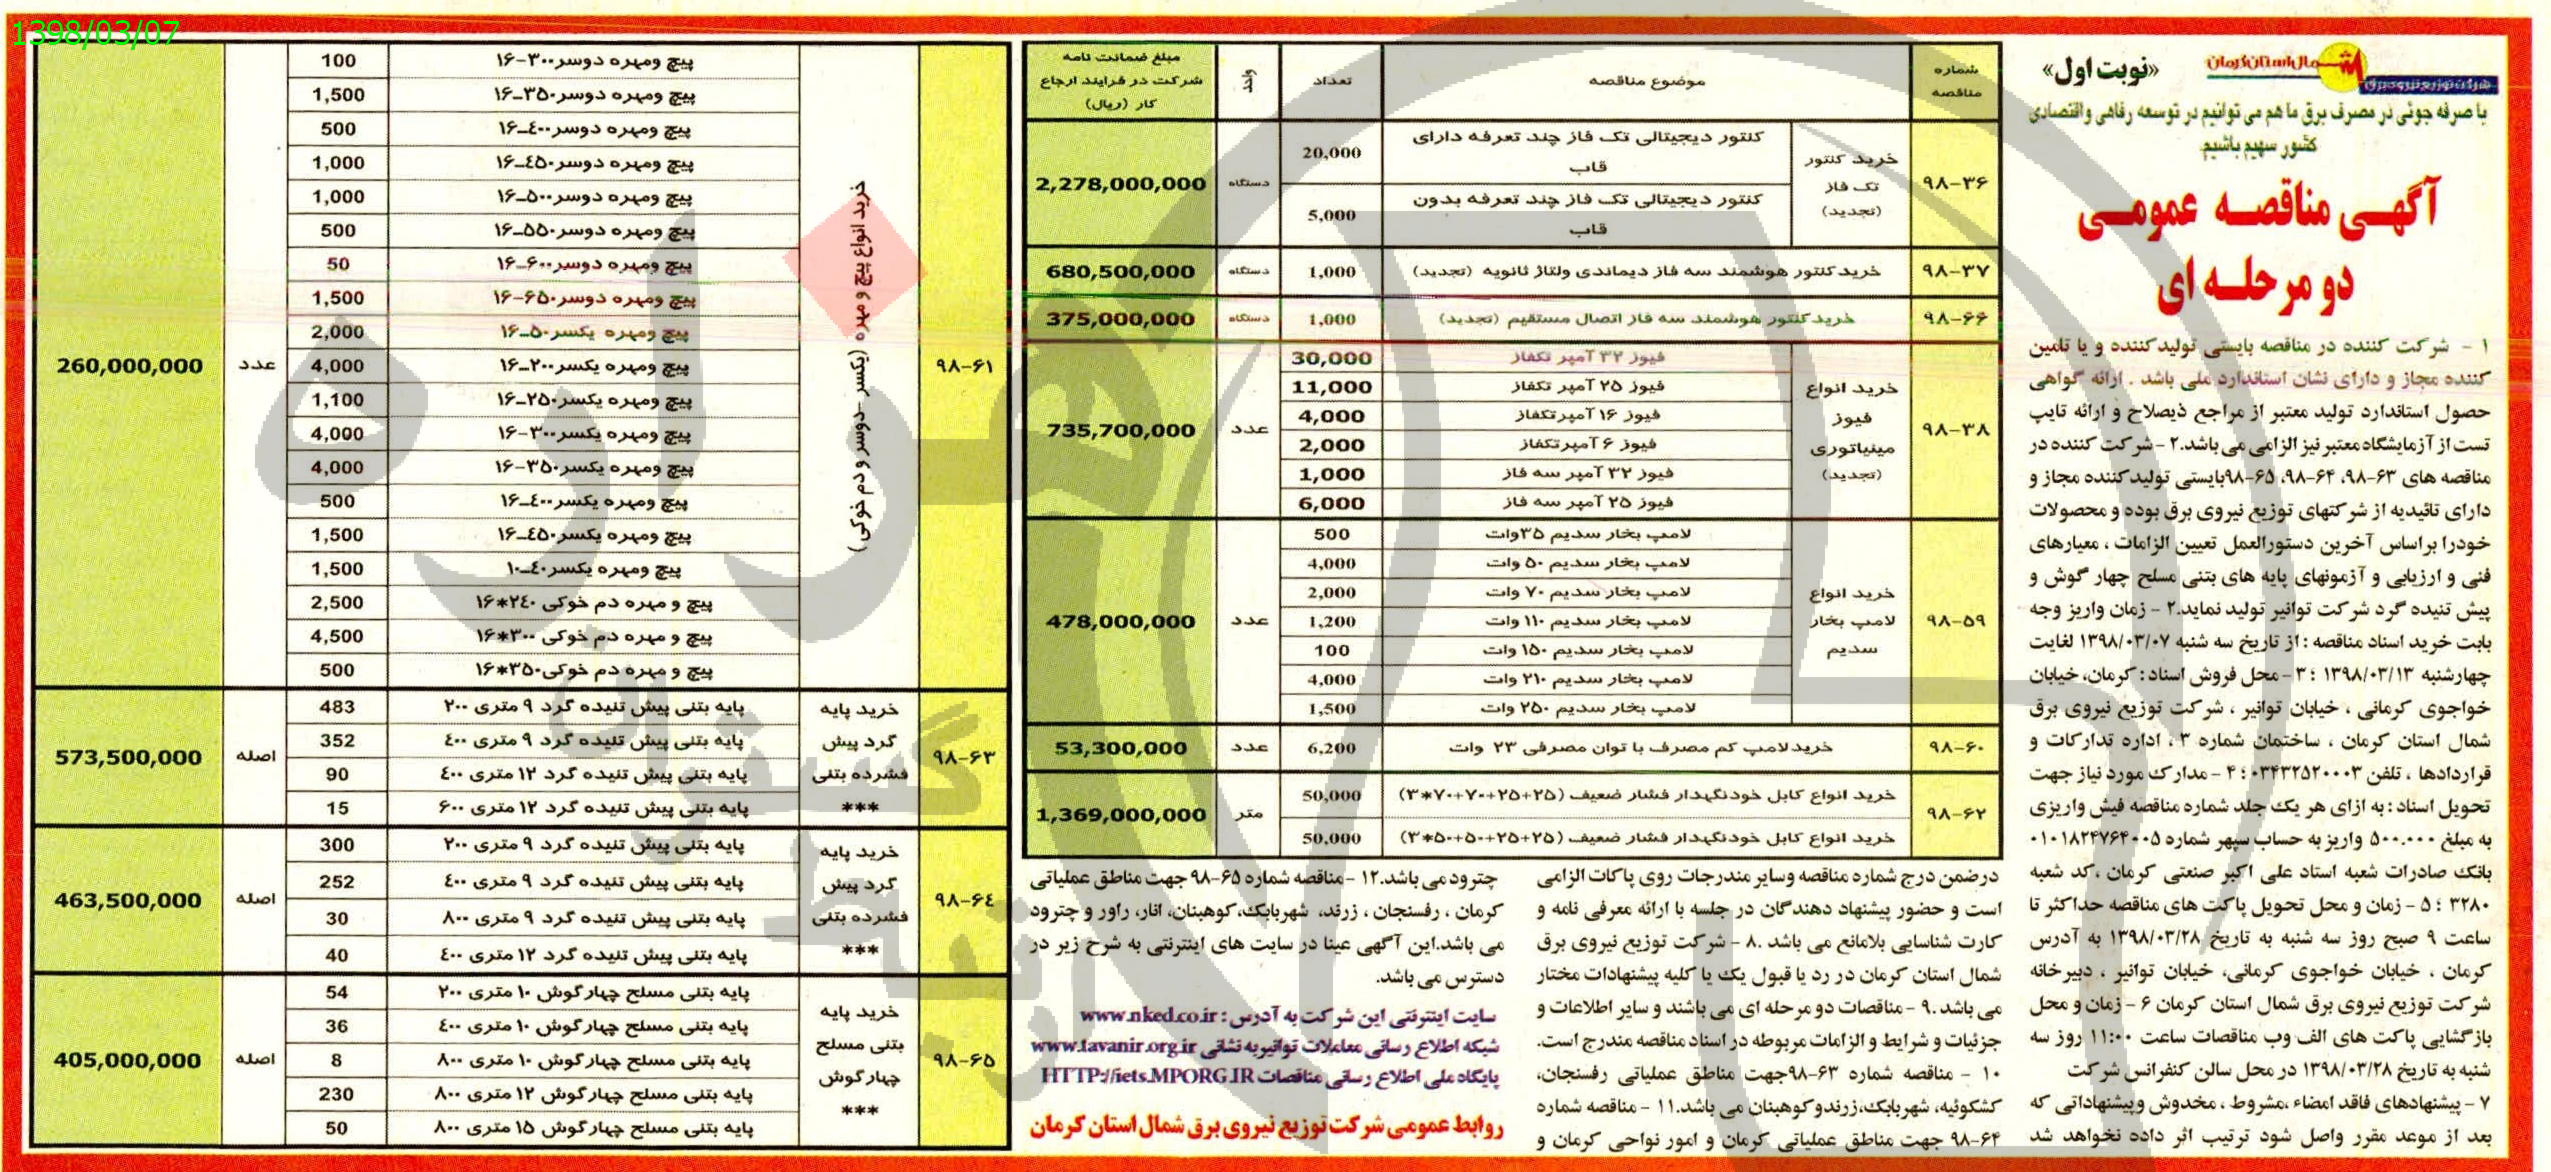 1398/03/07
شرکت توزیع نیروی برق
شمال استان کرمان
«نوبت اول»
با صرفه جوئی در مصرف برق ما هم می توانیم در توسعه رفاهی واقتصادی
کشور سهیم باشیم.
آگهی مناقصه عمومی
دو مرحله ای
۱ - شرکت کننده در مناقصه بایستی تولیدکننده و یا تامین
کننده مجاز و دارای نشان استاندارد ملی باشد . ارائه گواهی
حصول استاندارد تولید معتبر از مراجع ذیصلاح و ارائه تایپ
تست از آزمایشگاه معتبر نیز الزامی می باشد.۲ - شرکت کننده در
مناقصه های ۶۳-۹۸، ۶۴-۹۸، ۶۵-۹۸بایستی تولیدکننده مجاز و
دارای تائیدیه از شرکتهای توزیع نیروی برق بوده و محصولات
خودرا براساس آخرین دستورالعمل تعیین الزامات ، معیارهای
فنی و ارزیابی و آزمونهای پایه های بتنی مسلح چهار گوش و
پیش تنیده گرد شرکت توانیر تولید نماید.۲ - زمان واریز وجه
بابت خرید اسناد مناقصه : از تاریخ سه شنبه ۱۳۹۸/۰۳/۰۷ لغایت
چهارشنبه ۱۳۹۸/۰۳/۱۳ ؛ ۳ - محل فروش اسناد : کرمان، خیابان
خواجوی کرمانی ، خیابان توانیر ، شرکت توزیع نیروی برق
شمال استان کرمان ، ساختمان شماره ۳ ، اداره تدارکات و
قراردادها ، تلفن ۰۳۴۳۲۵۲۰۰۰۳؛ ۴ - مدارک مورد نیاز جهت
تحویل اسناد : به ازای هر یک جلد شماره مناقصه فیش واریزی
به مبلغ ۵۰۰.۰۰۰ واریز به حساب سپهر شماره ۰۱۰۱۸۲۴۷۶۴۰۰۵
بانک صادرات شعبه استاد علی اکبر صنعتی کرمان ،کد شعبه
۳۲۸۰ ؛ ۵ - زمان و محل تحویل پاکت های مناقصه حداکثر تا
ساعت ۹ صبح روز سه شنبه به تاریخ ۱۳۹۸/۰۳/۲۸ به آدرس
کرمان ، خیابان خواجوی کرمانی، خیابان توانیر ، دبیرخانه
شرکت توزیع نیروی برق شمال استان کرمان ۶ - زمان و محل
بازگشایی پاکت های الف وب مناقصات ساعت ۱۱:۰۰ روز سه
شنبه به تاریخ ۱۳۹۸/۰۳/۲۸ در محل سالن کنفرانس شرکت
۷ - پیشنهادهای فاقد امضاء ،مشروط ، مخدوش وپیشنهاداتی که
بعد از موعد مقرر واصل شود ترتیب اثر داده نخواهد شد
شماره مناقصه موضوع مناقصه تعداد واحد مبلغ ضمانت نامه شرکت در فرایند ارجاع کار (ریال)
۹۸-۳۶ خرید کنتور تک فاز (تجدید) کنتور دیجیتالی تک فاز چند تعرفه دارای قاب 20,000 دستگاه 2,278,000,000
کنتور دیجیتالی تک فاز چند تعرفه بدون قاب 5,000
۹۸-۳۷ خرید کنتور هوشمند سه فاز دیماندی ولتاژ ثانویه (تجدید) 1,000 دستگاه 680,500,000
۹۸-۶۶ خرید کنتور هوشمند سه فاز اتصال مستقیم (تجدید) 1,000 دستگاه 375,000,000
۹۸-۳۸ خرید انواع فیوز مینیاتوری (تجدید) فیوز ۳۲ آمپر تکفاز 30,000 عدد 735,700,000
فیوز ۲۵ آمپر تکفاز 11,000
فیوز ۱۶ آمپرتکفاز 4,000
فیوز ۶ آمپرتکفاز 2,000
فیوز ۳۲ آمپر سه فاز 1,000
فیوز ۲۵ آمپر سه فاز 6,000
۹۸-۵۹ خرید انواع لامپ بخار سدیم لامپ بخار سدیم ۳۵وات 500 عدد 478,000,000
لامپ بخار سدیم ۵۰ وات 4,000
لامپ بخار سدیم ۷۰ وات 2,000
لامپ بخار سدیم ۱۱۰ وات 1,200
لامپ بخار سدیم ۱۵۰ وات 100
لامپ بخار سدیم ۲۱۰ وات 4,000
لامپ بخار سدیم ۲۵۰ وات 1,500
۹۸-۶۰ خریدلامپ کم مصرف با توان مصرفی ۲۳ وات 6,200 عدد 53,300,000
۹۸-۶۲ خرید انواع کابل خودنگهدار فشار ضعیف (۲۵+۲۵+۷۰+۷۰*۳) 50,000 متر 1,369,000,000
خرید انواع کابل خودنگهدار فشار ضعیف (۲۵+۲۵+۵۰+۵۰*۳) 50,000
درضمن درج شماره مناقصه وسایر مندرجات روی پاکات الزامی
است و حضور پیشنهاد دهندگان در جلسه با ارائه معرفی نامه و
کارت شناسایی بلامانع می باشد .۸ - شرکت توزیع نیروی برق
شمال استان کرمان در رد یا قبول یک یا کلیه پیشنهادات مختار
می باشد .۹ - مناقصات دو مرحله ای می باشند و سایر اطلاعات و
جزئیات و شرایط و الزامات مربوطه در اسناد مناقصه مندرج است.
۱۰ - مناقصه شماره ۶۳-۹۸جهت مناطق عملیاتی رفسنجان،
کشکوئیه، شهربابک،زرندوکوهبنان می باشد.۱۱ - مناقصه شماره
۶۴-۹۸ جهت مناطق عملیاتی کرمان و امور نواحی کرمان و
چترود می باشد.۱۲ -مناقصه شماره ۶۵-۹۸ جهت مناطق عملیاتی
کرمان ، رفسنجان ، زرند، شهربابک،کوهبنان، انار، راور و چترود
می باشد.این آگهی عینا در سایت های اینترنتی به شرح زیر در
دسترس می باشد.
سایت اینترنتی این شرکت به آدرس : www.nked.co.ir
شبکه اطلاع رسانی معاملات توانیربه نشانی www.tavanir.org.ir
پایگاه ملی اطلاع رسانی مناقصات HTTP://iets.MPORG.IR
روابط عمومی شرکت توزیع نیروی برق شمال استان کرمان
۹۸-۶۱ خرید انواع پیچ و مهره (یکسر -دوسر و دم خوکی) پیچ ومهره دوسر۳۰۰-۱۶ 100 عدد 260,000,000
پیچ ومهره دوسر۳۵۰-۱۶ 1,500
پیچ ومهره دوسر۴۰۰-۱۶ 500
پیچ ومهره دوسر۴۵۰-۱۶ 1,000
پیچ ومهره دوسر۵۰۰-۱۶ 1,000
پیچ ومهره دوسر۵۵۰-۱۶ 500
پیچ ومهره دوسر۶۰۰-۱۶ 50
پیچ ومهره دوسر۶۵۰-۱۶ 1,500
پیچ ومهره یکسر۵۰-۱۶ 2,000
پیچ ومهره یکسر۲۰۰-۱۶ 4,000
پیچ ومهره یکسر۲۵۰-۱۶ 1,100
پیچ ومهره یکسر۳۰۰-۱۶ 4,000
پیچ ومهره یکسر۳۵۰-۱۶ 4,000
پیچ ومهره یکسر۴۰۰-۱۶ 500
پیچ ومهره یکسر۴۵۰-۱۶ 1,500
پیچ ومهره یکسر۴۰-۱۰ 1,500
پیچ و مهره دم خوکی ۲۴۰*۱۶ 2,500
پیچ و مهره دم خوکی ۳۰۰*۱۶ 4,500
پیچ و مهره دم خوکی۳۵۰*۱۶ 500
۹۸-۶۳ خرید پایه گرد پیش فشرده بتنی *** پایه بتنی پیش تنیده گرد ۹ متری ۲۰۰ 483 اصله 573,500,000
پایه بتنی پیش تنیده گرد ۹ متری ۴۰۰ 352
پایه بتنی پیش تنیده گرد ۱۲ متری ۴۰۰ 90
پایه بتنی پیش تنیده گرد ۱۲ متری ۶۰۰ 15
۹۸-۶۴ خرید پایه گرد پیش فشرده بتنی *** پایه بتنی پیش تنیده گرد ۹ متری ۲۰۰ 300 اصله 463,500,000
پایه بتنی پیش تنیده گرد ۹ متری ۴۰۰ 252
پایه بتنی پیش تنیده گرد ۹ متری ۸۰۰ 30
پایه بتنی پیش تنیده گرد ۱۲ متری ۴۰۰ 40
۹۸-۶۵ خرید پایه بتنی مسلح چهارگوش *** پایه بتنی مسلح چهارگوش ۱۰ متری ۲۰۰ 54 اصله 405,000,000
پایه بتنی مسلح چهارگوش ۱۰ متری ۴۰۰ 36
پایه بتنی مسلح چهارگوش ۱۰ متری ۸۰۰ 8
پایه بتنی مسلح چهارگوش ۱۲ متری ۸۰۰ 230
پایه بتنی مسلح چهارگوش ۱۵ متری ۸۰۰ 50